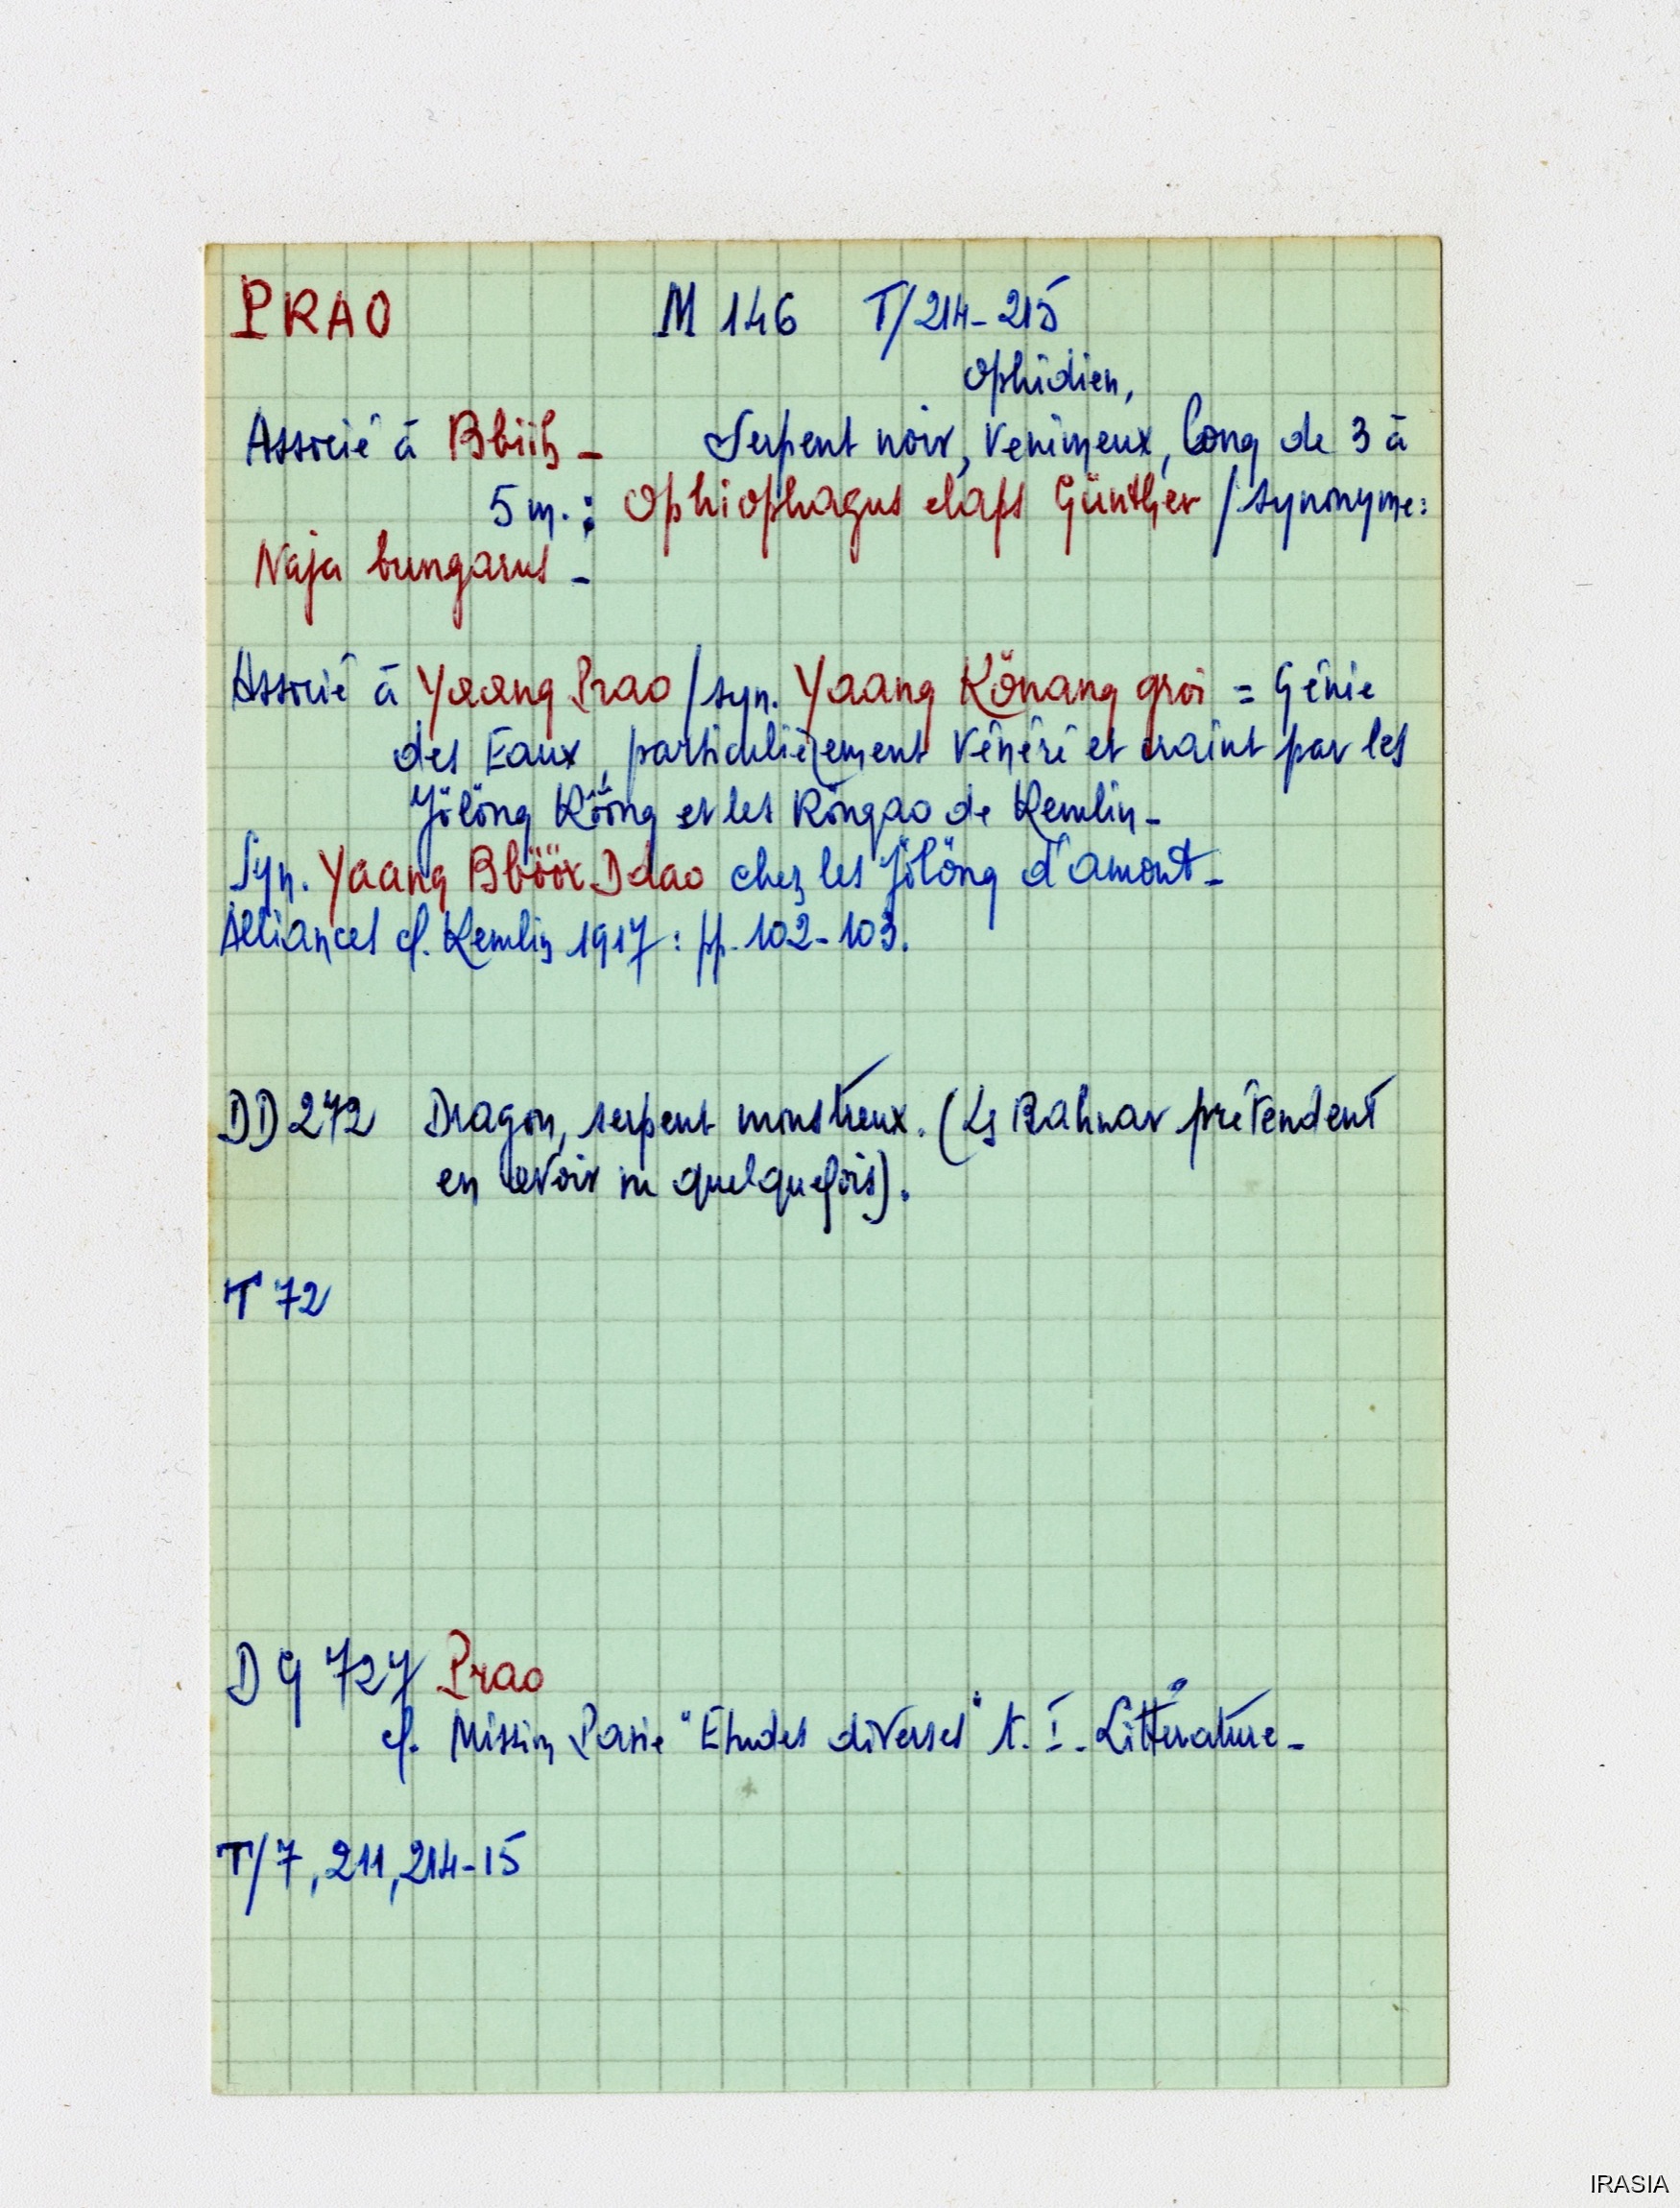 PRAO M 146 T/214-215
Ophidien,
Associé à Bbiih - Serpent noir, venimeux, long de 3 à
5 m. : Ophiophagus elaps Günther / synonyme :
Naja bungarus -
Associé à Yaang Prao / syn. Yaang Könang groi = Génie
des Eaux, particulièrement vénéré et craint par les
Jölöng Köong et les Röngao de Kemlin -
Syn. Yaang Bböök Ddao chez les Jölöng d'amont -
Alliances cf. Kemlin 1917 : pp. 102-103.
DD 272 Dragon, serpent monstrueux. (Ls Bahnar prétendent
en avoir vu quelquefois).
T 72
DG 727 Prao
cf. Mission Pavie "Etudes diverses" t. I - Littérature -
T/7, 211, 214-15
IRASIA